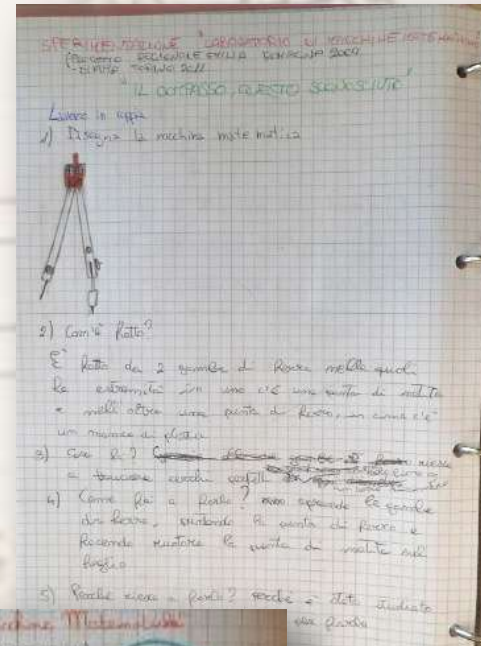 SPERIMENTAZIONE "LABORATORIO DI MACCHINE MATEMATICHE"
(PROGETTO REGIONALE EMILIA ROMAGNA 2009
TORINO 2011
"IL COMPASSO, QUESTO SCONOSCIUTO"
Lavoro in coppia
1) Disegna la macchina matematica
2) Com'è fatto?
È fatto da 2 gambe di ferro nelle quali
le estremità in una c'è una punta di matita
e nell'altra una punta di ferro, in cima c'è
un manico di plastica
3) Cosa fa? riesce
a tracciare cerchi perfetti
4) Come fai a farlo? aprendo le gambe
di ferro, puntando la punta di ferro e
facendo ruotare la punta di matita nel
foglio
5) Perché riesce a farlo? perché è stato studiato
per farlo
Macchine Matematiche